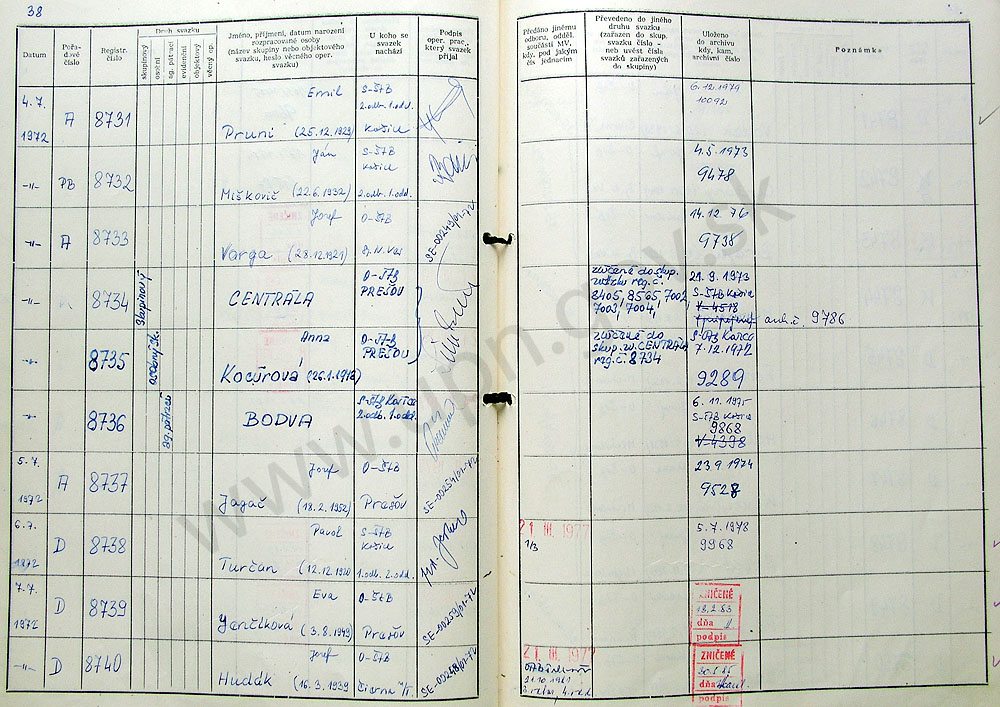 38
Datum
Pořadové číslo
Registr. číslo
Druh svazku
skupinový
osobní
ag. pátrací
evidenční
objektový
věcný op.
Jméno, příjmení, datum narození
rozpracované osoby
(název skupiny nebo objektového
svazku, heslo věcného oper.
svazku)
U koho se
svazek
nachází
Podpis
oper. prac.,
který svazek
přijal
Předáno jinému
odboru, odděl.
součásti MV,
kdy, pod jakým
čís jednacím
Převedeno do jiného
druhu svazku
(zařazen do skup.
svazku číslo -
neb uvést čísla
svazků zařazených
do skupiny)
Uloženo
do archivu
kdy, kam,
archivní číslo
Poznámka
4.7.
1972
A
8731
Emil
Pruni (25.12.1929)
S-ŠtB
2.odb.1.odd.
Košice
6.12.1979
10092
-"-
PB
8732
Ján
Miškovič (22.6.1932)
S-ŠtB
Košice
2.odb.1.odd.
4.5.1973
9478
-"-
A
8733
Jozef
Varga (28.12.1921)
O-ŠtB
SE-00249/01-72
14.12.76
9738
-"-
8734
skupinový
CENTRÁLA
O-ŠtB
PREŠOV
zlúčené do skup.
zväzku reg.č.
8405, 8565, 7002,
7003, 7004,
21.9.1973
S-ŠtB Košice
V-4518
arch.č. 9786
-"-
8735
osobný sk.
Anna
Kocúrová (26.1.1918)
O-ŠtB
PREŠOV
zlúčené do
skup. zv. CENTRÁLA
reg.č. 8734
S-ŠtB Košice
7.12.1972
9289
-"-
8736
ag. pátrací
BODVA
S-ŠtB Košice
2.odb.1.odd.
6.11.1975
S-ŠtB Košice
9868
V-4398
5.7.
1972
A
8737
Jozef
Jagač (18.2.1952)
O-ŠtB
Prešov
SE-00254/01-72
23.9.1974
9528
6.7.
1972
D
8738
Pavol
Turčan (12.12.1920
S-ŠtB
Košice
1.odb.2.odd.
21. III. 1977
1/3
5.7.1978
9968
7.7.
1972
D
8739
Eva
Jenčíková (3.8.1949)
O-ŠtB
Prešov
SE-00259/01-72
ZNIČENÉ
18.2.83
dňa
podpis
-"-
D
8740
Jozef
Hudák (16.3.1939
O-ŠtB
Čierna n/T.
SE-00258/01-72
21. III. 1977
21.10.1981
ZNIČENÉ
dňa
podpis
www.upn.gov.sk